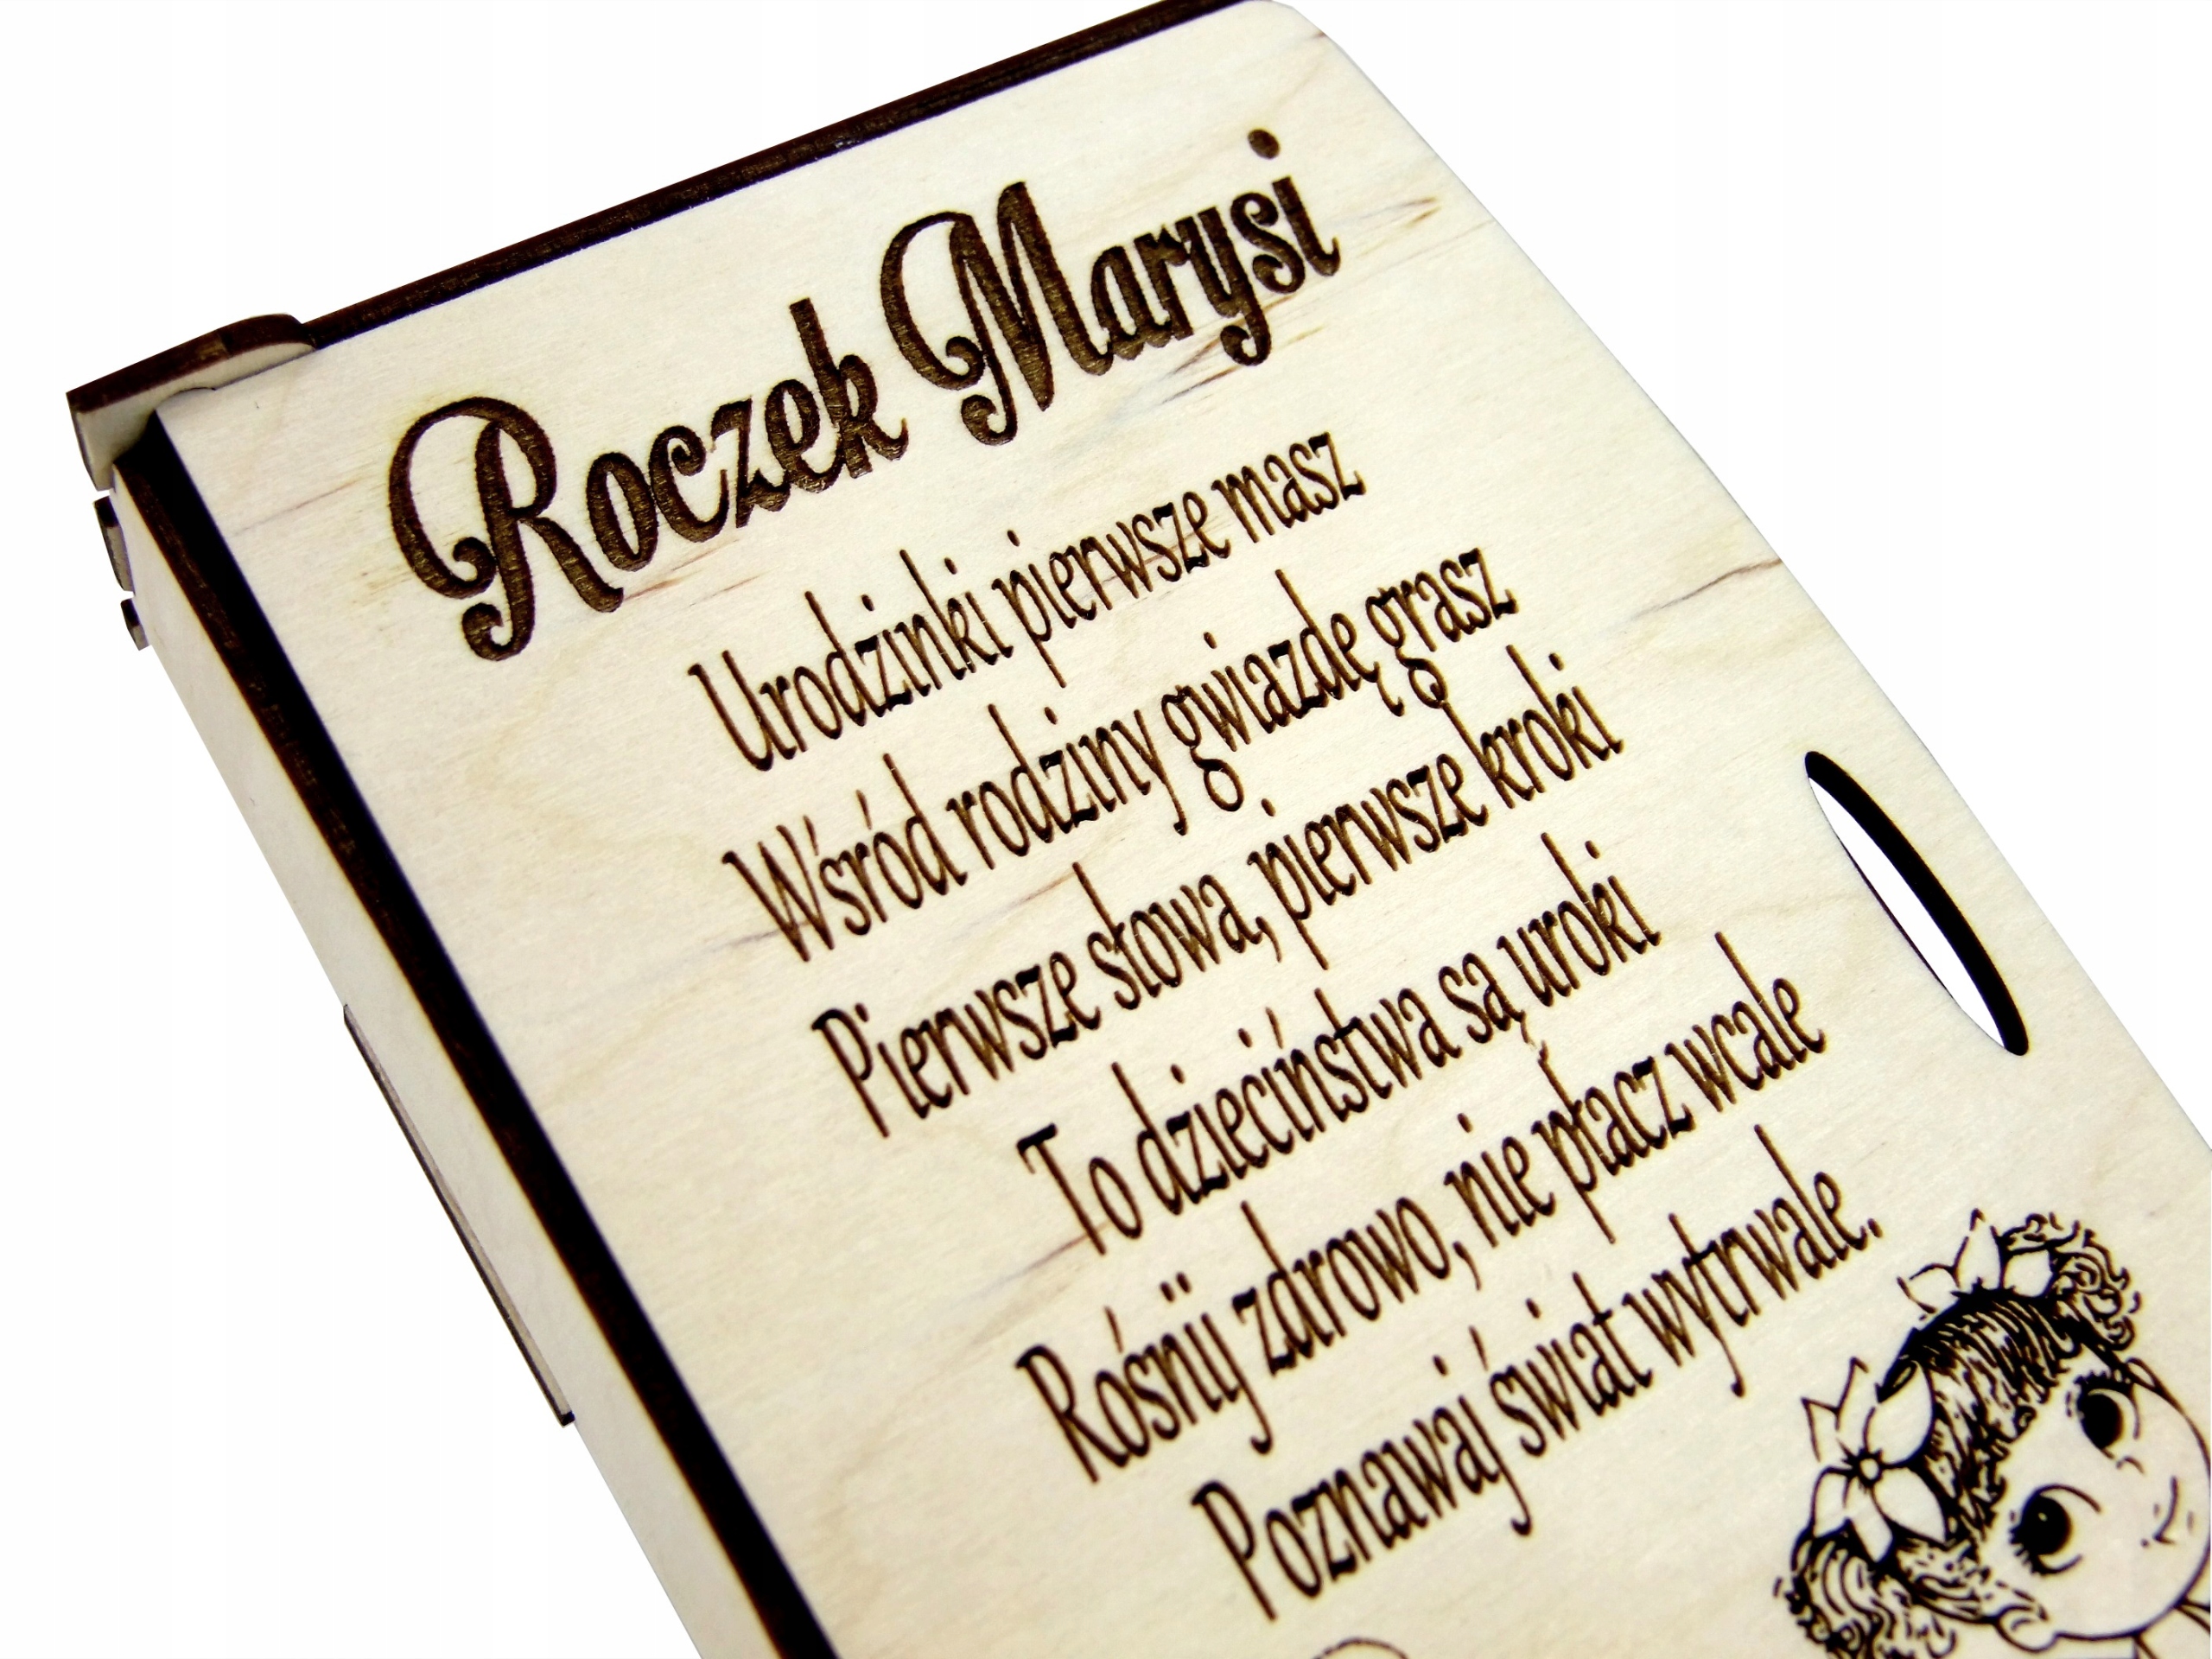 Roczek Marysi
Urodzinki pierwsze masz
Wśród rodziny gwiazdę grasz
Pierwsze słowa, pierwsze kroki
To dzieciństwa są uroki
Rośnij zdrowo, nie płacz wcale
Poznawaj świat wytrwale.